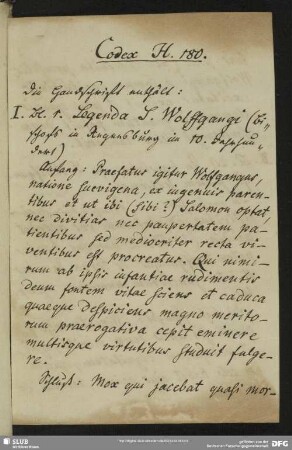 Codex H. 180.
Die Handschrift enthält:
I. Bl. 1. Legenda S. Wolffgangi (Bi-
schofs in Regensburg im 10. Jahrhun-
dert)
Anfang: Praefatus igitur Wolfgangus,
natione suevigena, ex ingenuis paren-
tibus et ut ibi (sibi ?) Salomon optat,
nec divitias nec paupertatem pa-
tientibus sed mediocriter recta vi-
ventibus est procreatus. Qui nimi-
rum ab ipsis infantiae rudimentis
deum fontem vitae sciens et caduca
quaeque despiciens magno merito-
rum praerogativa cepit eminere
multisque virtutibus studuit fulge-
re.
Schluß: Mox qui jacebat quasi mor-
SLUB
Wir führen Wissen.
gefördert von der
Deutschen Forschungsgemeinschaft
DFG